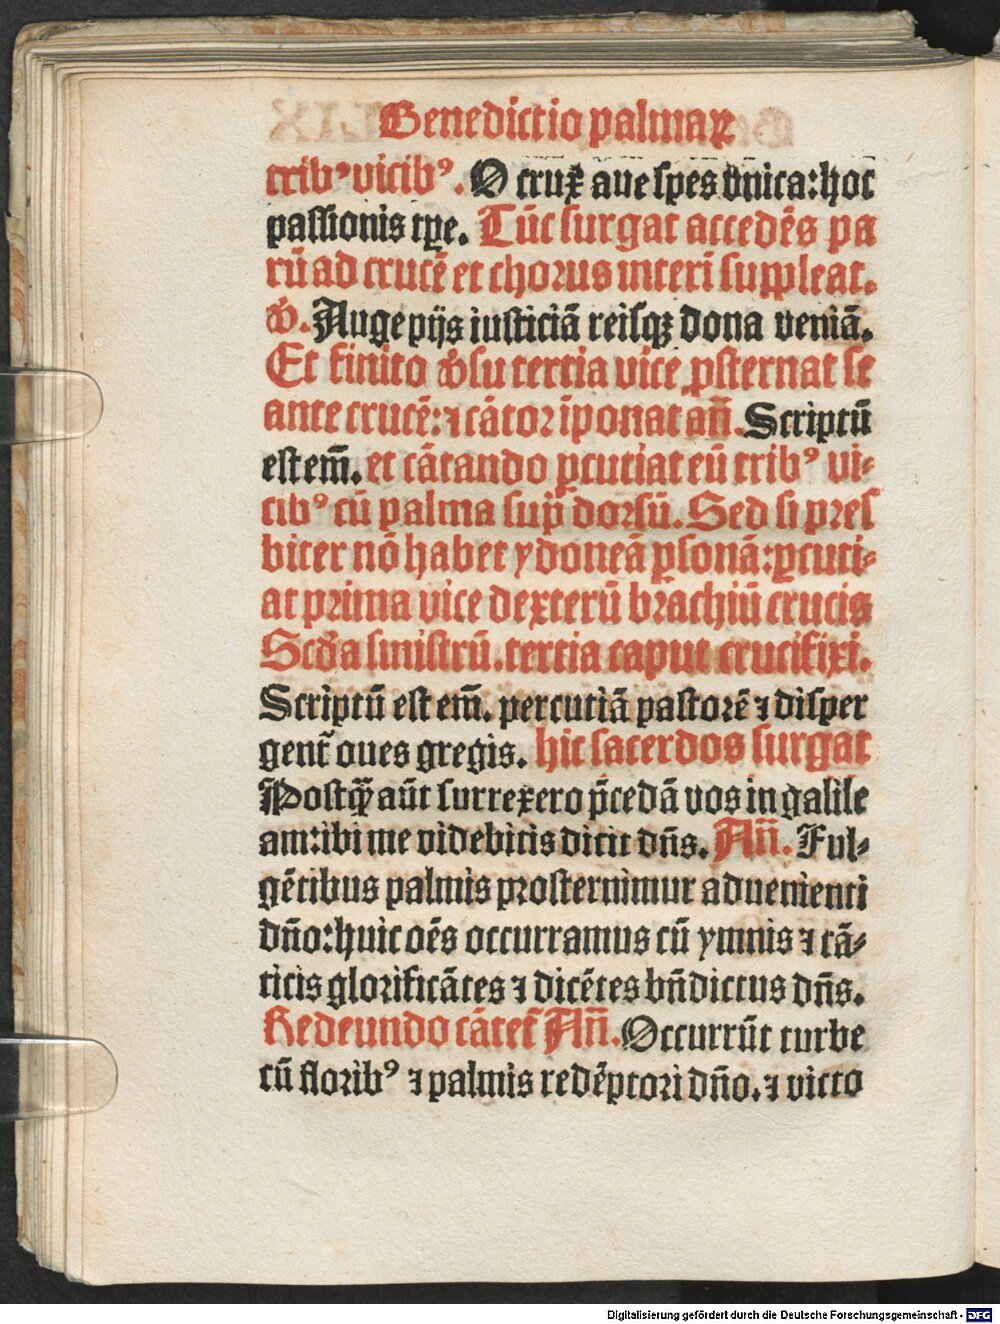 Benedictio palmaꝝ
tribꝰ vicibꝰ. O crux̄ aue spes vnica: hoc
passionis tp̱e. Tūc surgat accedēs pa
rū ad crucē et chorus interī suppleat.
℣. Auge pijs iusticiā reisqꝫ dona veniā.
Et finito ℣su tertia vice ꝓsternat se
ante crucē: ⁊ cātor īponat an̄. Scriptū
est em̄. et cātando ꝑcutiat eū tribꝰ vi⸗
cibꝰ cū palma sup̄ dorsū. Sed si pres
biter nō habet ydoneā ꝑsonā: ꝑcuti⸗
at prima vice dexterū brachiū crucis
Scd̄a sinistrū. tertia caput crucifixi.
Scriptū est em̄. percutiā pastorē ⁊ disper
gent̄ oues gregis. hic sacerdos surgat
Postqȝ̄ aūt surrexero p̄cedā vos in galile
am: ibi me videbitis dicit dn̄s. An̄. Ful⸗
gētibus palmis prosternimur aduenienti
dn̄o: huic oēs occurramus cū ymnis ⁊ cā⸗
ticis glorificātes ⁊ dicētes bn̄dictus dn̄s.
Redeundo cātet̄ An̄. Occurrūt turbe
cū floribꝰ ⁊ palmis redēptori dn̄o. ⁊ victo
Digitalisierung gefördert durch die Deutsche Forschungsgemeinschaft - DFG